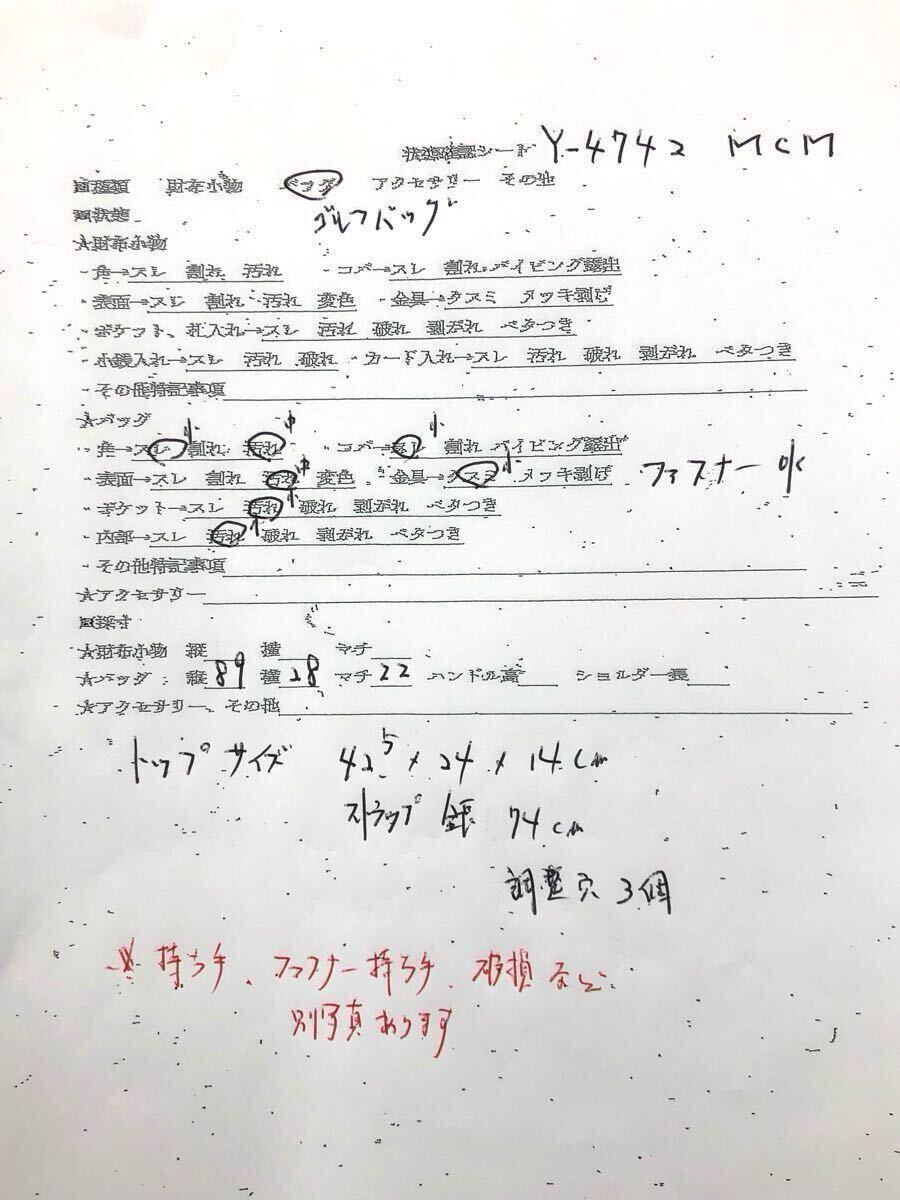 状態確認シート Y-4742 MCM
■種類 財布小物 バッグ アクセサリー その他
■状態 ゴルフバッグ
★財布小物
・角→スレ 割れ 汚れ ・コバ→スレ 割れ パイピング露出
・表面→スレ 割れ 汚れ 変色 ・金具→クスミ メッキ剥げ
・ポケット、札入れ→スレ 汚れ 破れ 剥がれ ベタつき
・小銭入れ→スレ 汚れ 破れ ・カード入れ→スレ 汚れ 破れ 剥がれ ベタつき
・その他特記事項
★バッグ
小 中 小
・角→スレ 割れ 汚れ ・コバ→スレ 割れ パイピング露出
・表面→スレ 割れ 汚れ 中 変色 ・金具→クスミ 小 メッキ剥げ ファスナー 小
・ポケット→スレ 汚れ 小 破れ 剥がれ ベタつき
・内部→スレ 汚れ 小 破れ 剥がれ ベタつき
・その他特記事項
★アクセサリー
■採寸
★財布小物 縦 横 マチ
★バッグ 縦 89 横 28 マチ 22 ハンドル高 ショルダー長
★アクセサリー、その他
トップサイズ 42.5 × 24 × 14cm
ストラップ 全長 74cm
調整穴 3個
※ 持ち手、ファスナー持ち手、破損など
別写真あります